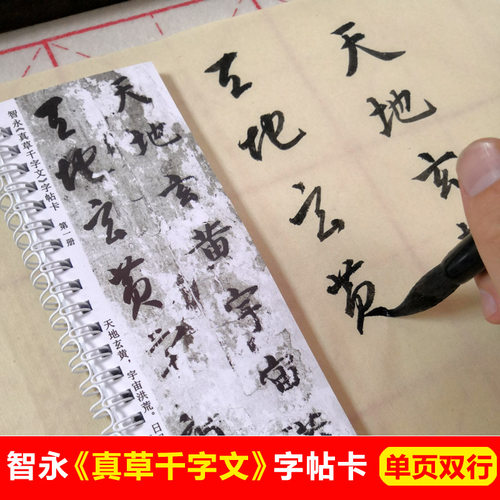 智永《真草千字文》字帖卡 第一册
天地玄黄，宇宙洪荒。日
天地玄黄宇宙
天地玄黄宇
天地玄
天地玄黄
智永《真草千字文》字帖卡 单页双行